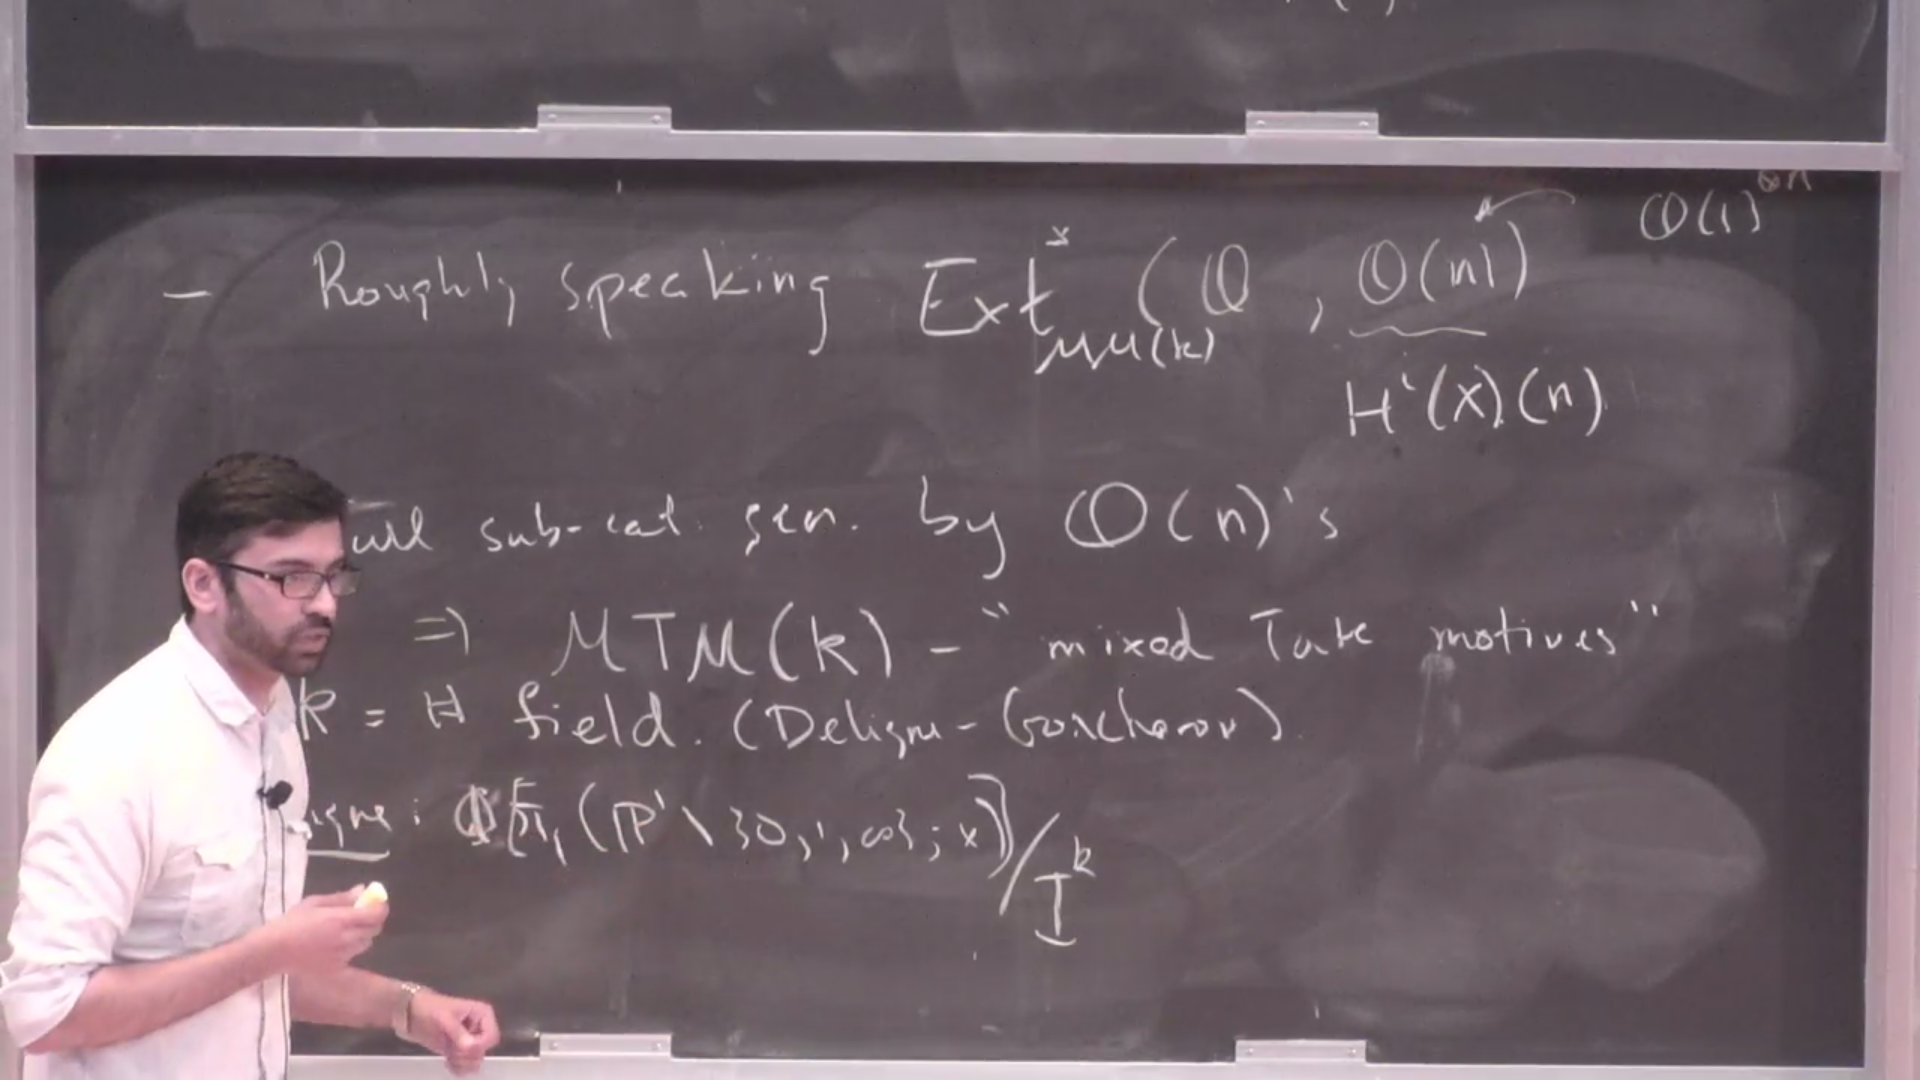 Q(1)^{⊗n}
– Roughly speaking Ext^*_{MM(k)} (Q, Q(n))
H^i(X)(n)
full sub-cat. gen. by Q(n)'s
⇒ MTM(k) – "mixed Tate motives"
k = # field. (Deligne-Goncharov).
: Q[π_1(P^1 \ {0,1,∞}; x)] / I^k